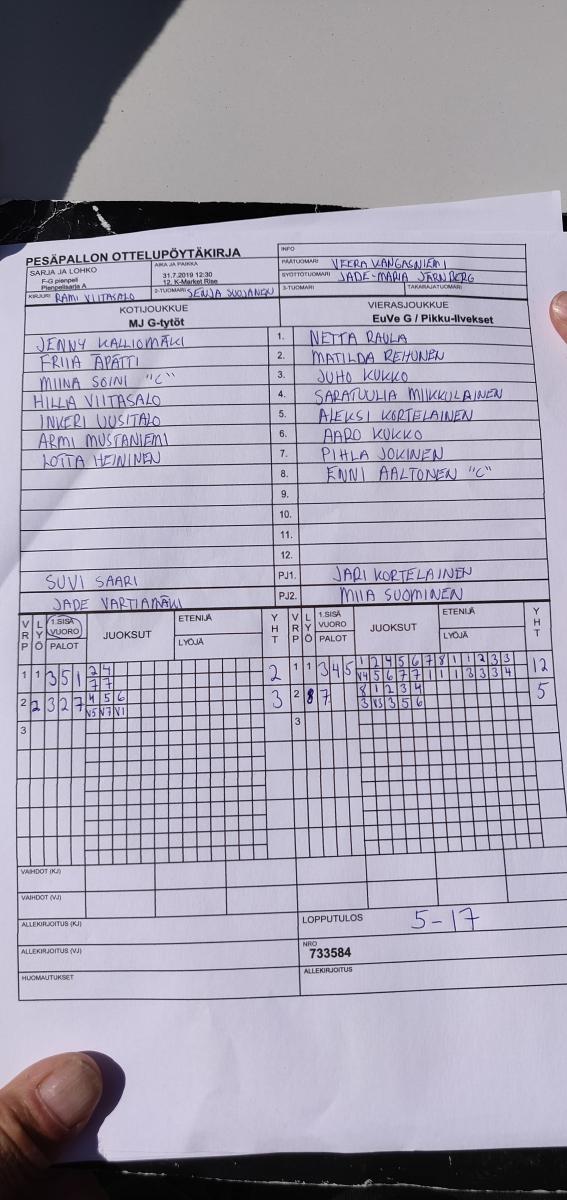 PESÄPALLON OTTELUPÖYTÄKIRJA
INFO
SARJA JA LOHKO
F-G pienpeli
Pienpelisarja A
AIKA JA PAIKKA
31.7.2019 12:30
12. K-Market Rise
PÄÄTUOMARI VEERA KANGASNIEMI
SYÖTTÖTUOMARI JADE-MARIA JÄRNBERG
KIRJURI RAMI VIITASALO
2-TUOMARI SENJA SUOJANEN
3-TUOMARI
TAKARAJATUOMARI
KOTIJOUKKUE VIERASJOUKKUE
MJ G-tytöt EuVe G / Pikku-Ilvekset
JENNY KALLIOMÄKI 1. NETTA RAULA
FRIIA ÄPÄTTI 2. MATILDA REHUNEN
MIINA SOINI "C" 3. JUHO KUKKO
HILLA VIITASALO 4. SARATUULIA MIIKKULAINEN
INKERI UUSITALO 5. ALEKSI KORTELAINEN
ARMI MUSTANIEMI 6. AARO KUKKO
LOTTA HEININEN 7. PIHLA JOKINEN
8. ENNI AALTONEN "C"
9.
10.
11.
12.
SUVI SAARI PJ1. JARI KORTELAINEN
JADE VARTIAMÄKI PJ2. MIIA SUOMINEN
VRP LYÖ 1.SISÄ VUORO PALOT JUOKSUT ETENIJÄ LYÖJÄ YHT VRP LYÖ 1.SISÄ VUORO PALOT JUOKSUT ETENIJÄ LYÖJÄ YHT
1 1 3 5 1 2 4 2 1 1 3 4 5 1 2 4 5 6 7 8 1 1 2 3 3 12
7 7 V4 5 6 7 7 1 1 1 3 3 3 4
2 2 3 2 7 4 5 6 3 2 7 8 1 2 3 4 5
V5 V7 V1 3 V3 3 5 6
3 3
VAIHDOT (KJ)
VAIHDOT (VJ)
ALLEKIRJOITUS (KJ)
LOPPUTULOS 5-17
ALLEKIRJOITUS (VJ)
NRO
733584
HUOMAUTUKSET
ALLEKIRJOITUS